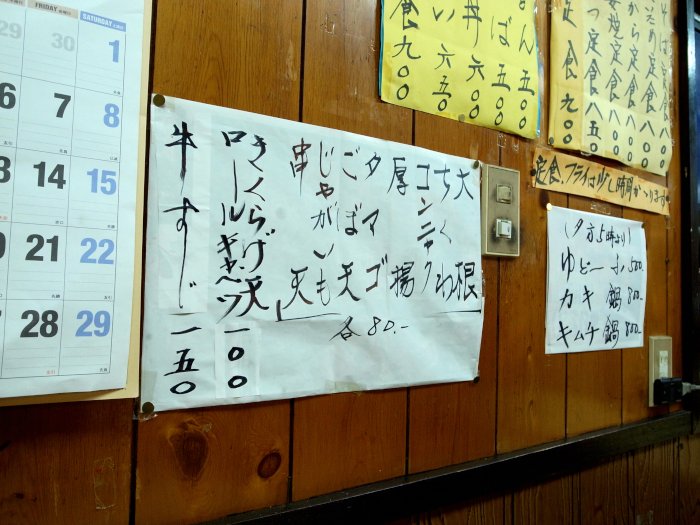 FRIDAY SATURDAY
29 30 1
6 7 8
14 15
21 22
28 29
大根
ちくわ
コンニャク
厚揚
タマゴ
ごぼ天
じゃがいも
串天
各80.-
きくらげ天
ロールキャベツ一〇〇
牛すじ一五〇
丼六〇〇
い六五〇
食九〇〇
定食八〇
定食八〇
定食八〇
つ定食八五〇
定食九〇
定食、フライは少し時間かゝります
(夕方5時より)
ゆどーふ500.-
カキ鍋800.-
キムチ鍋800.-